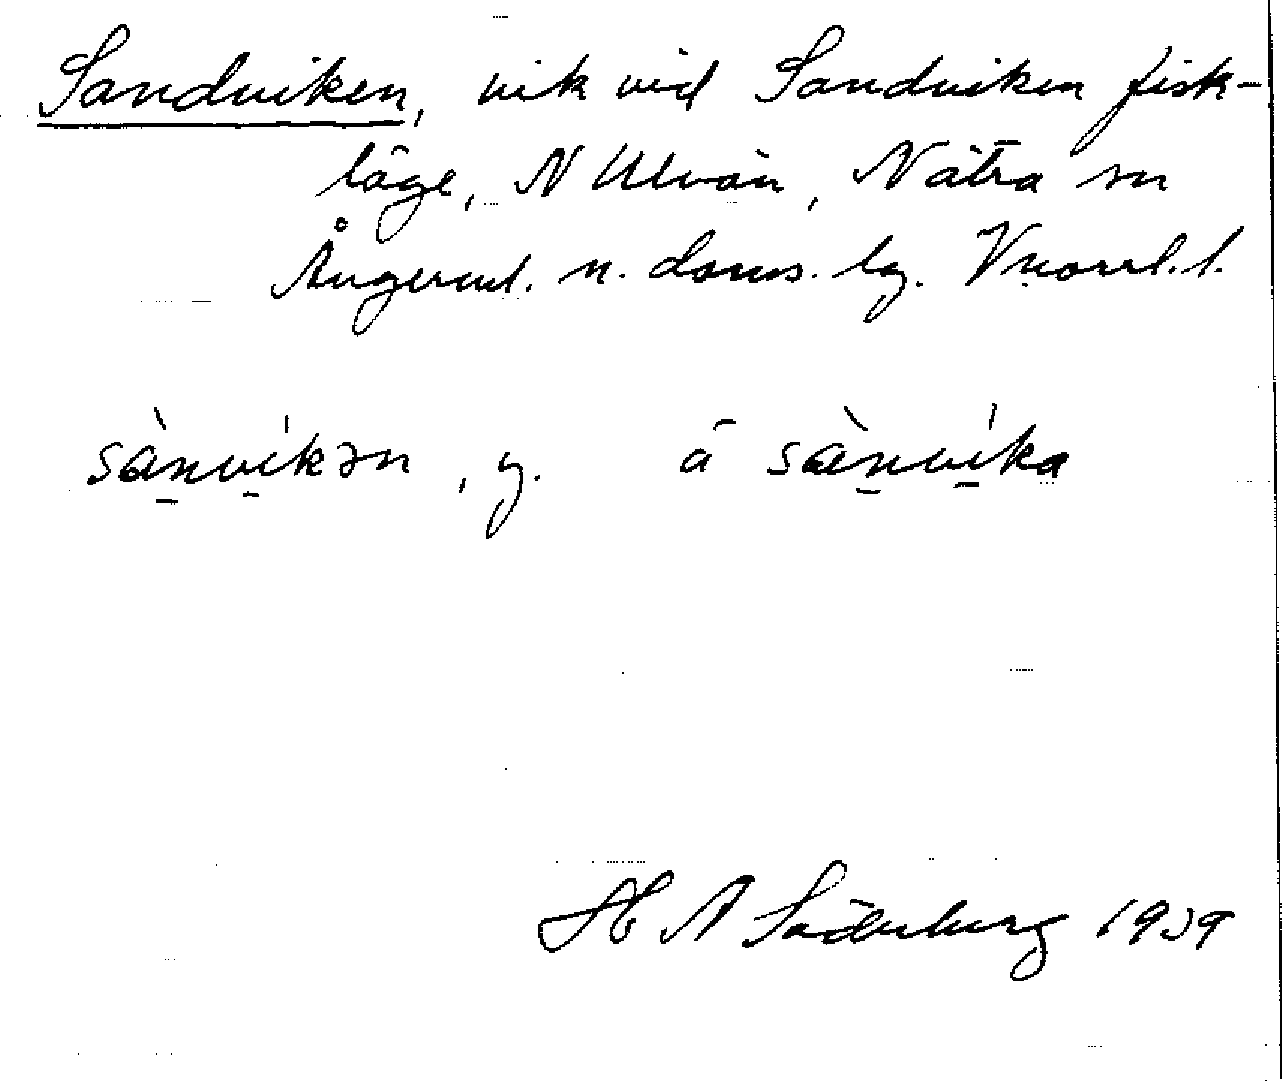 Sandviken, vik vid Sandviken fisk-
läge, N Ulvön, Nätra sn
Ångerml. n. doms. lg. Vnorrl. l.
sànvíkən, y. á sæ̀nvíka
H A Söderberg 1939